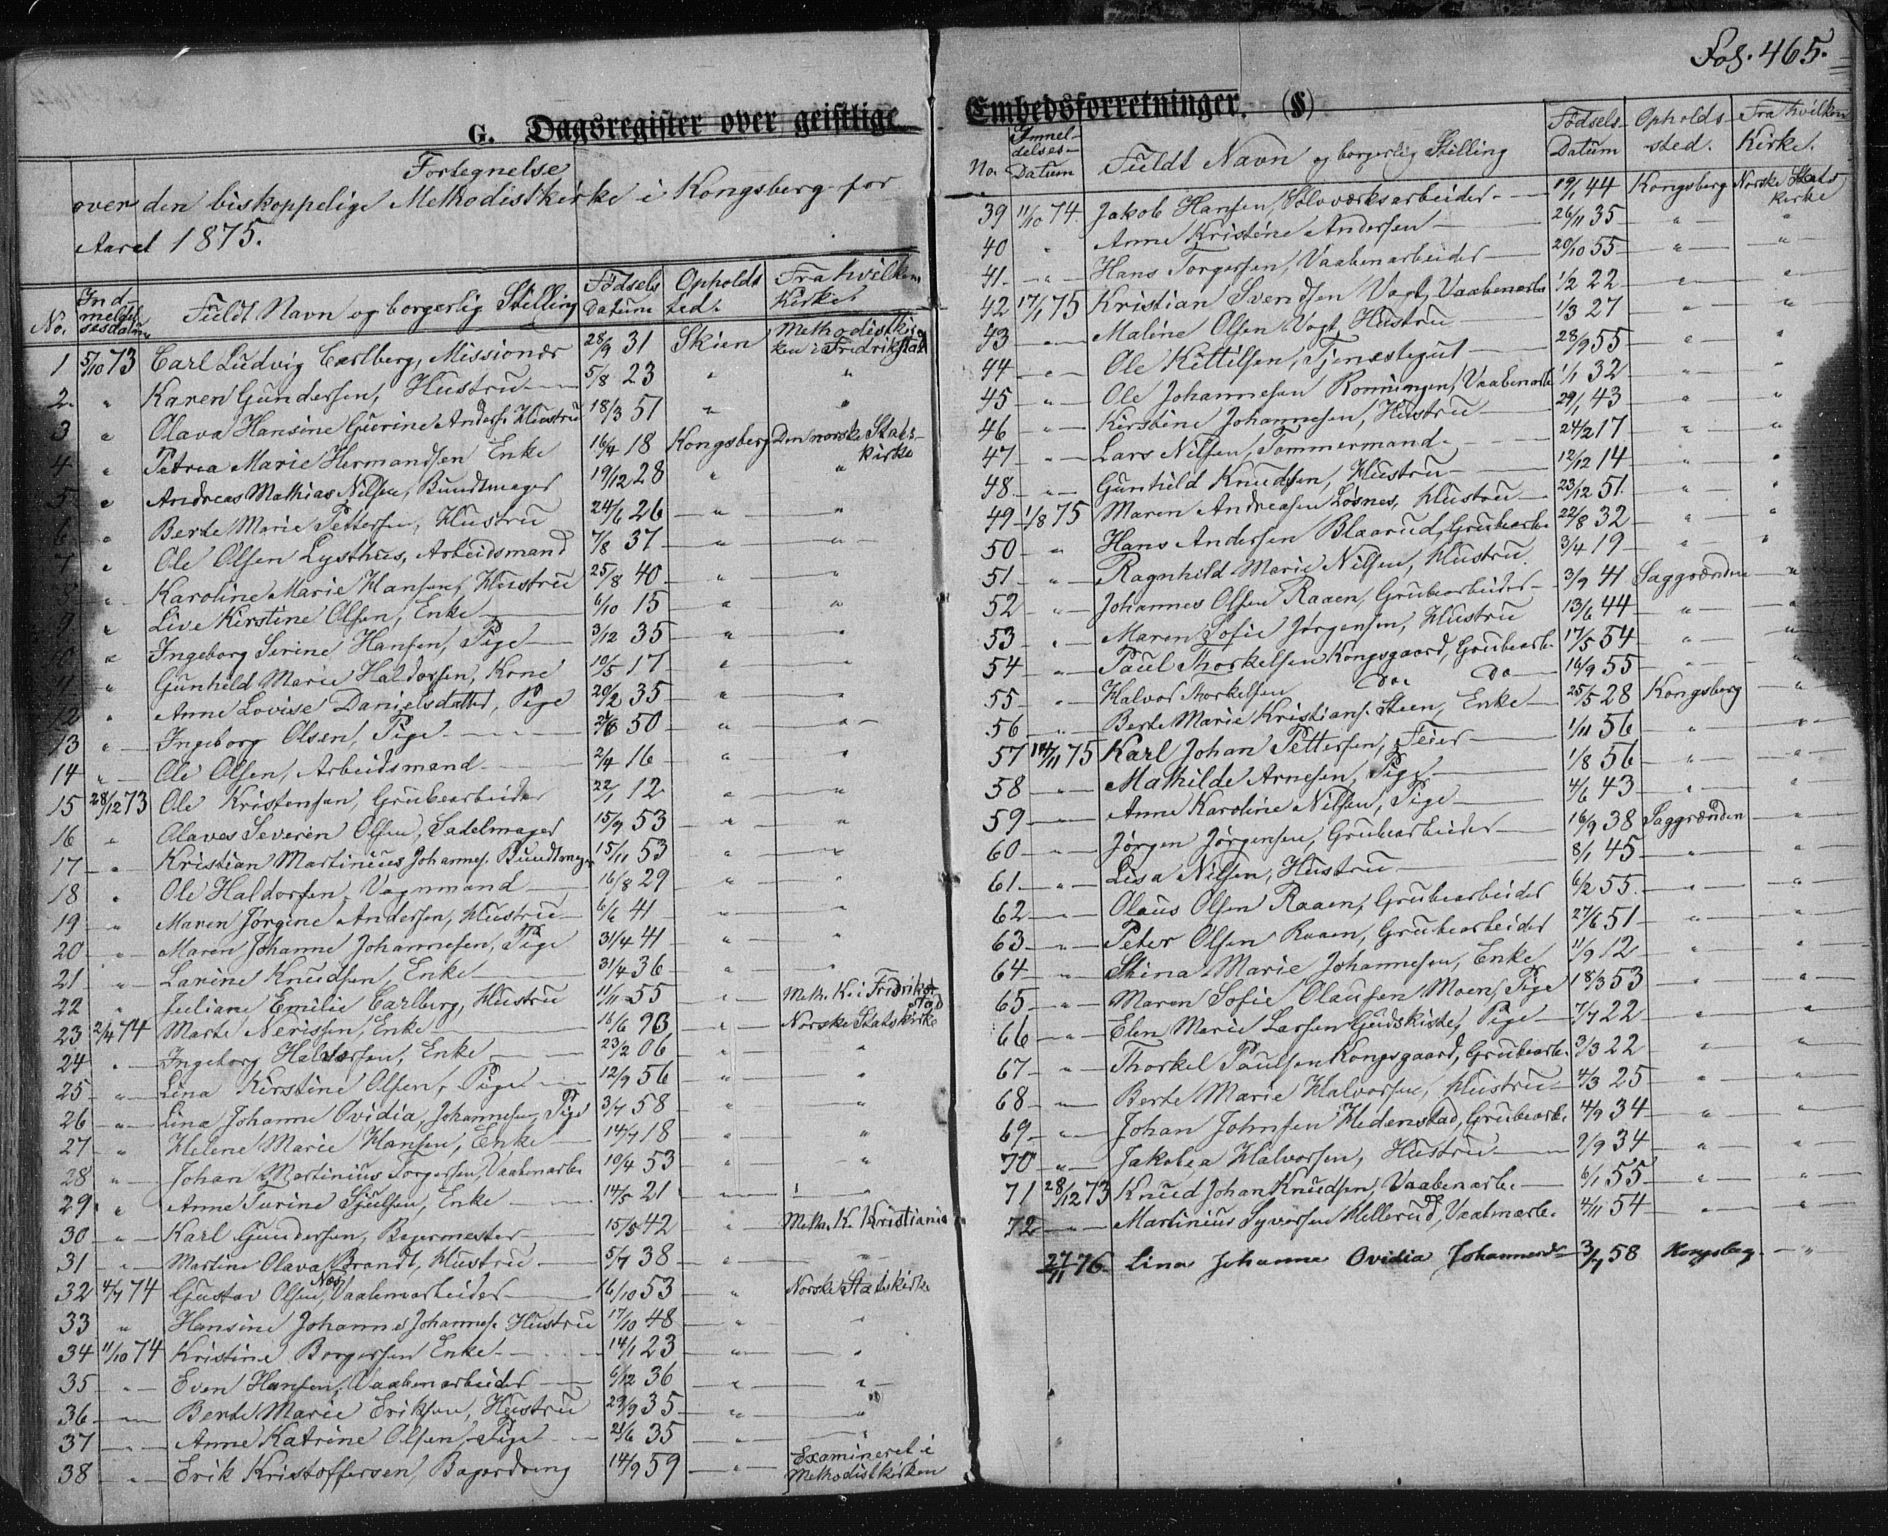 Fol. 465.
G. Dagsregister over geistlige
Fortegnelse
over den biskoppelige Methodistkirke i Kongsberg for
Aaret 1875.
No. Indmeldelsesdatum Fuldt Navn og borgerlig Stilling Fødsels Datum Opholdsted. Fra hvilken Kirke.
1 5/10 73 Carl Ludvig Carlberg, Missionær 28/9 31 Skien Methodistkirken i Fredrikstad
2 " Karen Gundersen, Hustru 5/8 23 " "
3 " Olava Hansine Gurine Anders. Hustru 18/3 51 " "
4 " Petrea Marie Hermandsen Enke 16/4 18 Kongsberg Den norske Statskirke
5 " Andreas Mathias Nilsen, Bundtmager 19/12 28 " "
6 " Berte Marie Pettersen, Hustru 24/6 26 " "
7 " Ole Olsen Lysthus, Arbeidsmand 7/8 37 " "
8 " Karoline Marie Hansen, Hustru 25/8 40 " "
9 " Live Kirstine Olsen, Enke 6/10 15 " "
10 " Ingeborg Sirine Hansen, Pige 3/12 35 " "
11 " Gunhild Marie Haldorsen, Kone 10/5 17 " "
12 " Anne Lovise Danielsdatter, Pige 20/2 35 " "
13 " Ingeborg Olsen, Pige 50 " "
14 " Ole Olsen, Arbeidsmand 2/4 16 " "
15 28/12 73 Ole Kristensen, Grubearbeider 22/1 12 " "
16 " Olaves Severin Olsen, Sadelmager 15/9 53 " "
17 " Kristian Martinius Johannes. Bundtmager 15/11 53 " "
18 " Ole Haldorsen, Vognmand 16/8 29 " "
19 " Maren Jørgine Andersen, Hustru 6/6 41 " "
20 " Maren Johanne Johannesen, Pige 31/4 41 " "
21 " Larine Knudsen, Enke 31/4 36 " "
22 " Juliane Emilie Carlberg, Hustru 11/11 55 " Meth. K. i Fredrikstad
23 2/4 74 Marte Nerissen, Enke 16/6 93 " Norske Statskirke
24 " Ingeborg Halvorsen, Enke 23/2 06 " "
25 " Lina Kirstine Olsen, Pige 12/9 56 " "
26 " Lina Johanne Ovidia Johannesen, Pige 3/7 58 " "
27 " Helene Marie Hansen, Enke 14/7 18 " "
28 " Johan Martinius Torgersen, Vaabenarbe 10/4 53 " "
29 " Anne Turine Sjulsen, Enke 14/5 21 " "
30 " Karl Gundersen, Bagermester 15/5 42 " Meth. K. Kristiania
31 " Martine Olava Brandt, Hustru 5/7 38 " "
32 4/7 74 Gustav Olsen Næs, Vaabenarbeider 16/10 53 " Norske Statskirke
33 " Hansine Johanne Johannes. Hustru 17/10 48 " "
34 11/10 74 Kristine Borgersen Enke 14/1 23 " "
35 " Even Hansen, Vaabenarbeider 6/12 36 " "
36 " Berte Marie Eriksen, Hustru 29/9 35 " "
37 " Anne Katrine Olsen, Pige 21/6 35 " "
38 " Erik Kristoffersen, Bagerdreng 14/9 59 " Examineret i Methodistkirken
Embedsforretninger. (§)
No. Immeldelses Datum Fuldt Navn og borgerlig Stilling Fødsels Datum Opholdssted. Fra hvilken Kirke.
39 11/10 74. Jakob Hansen, Sølvværksarbeider 19/1 44 Kongsberg Norske Statskirke
40 " Anne Kristine Andersen 26/11 35 " "
41 " Hans Torgersen, Vaabenarbeider 20/10 55 " "
42 17/1 75 Kristian Svendsen Vogt, Vaabenarbe 1/2 22 " "
43 " Maline Olsen Vogt, Hustru 1/3 27 " "
44 " Ole Kittilsen, Tjenestegut 28/9 55 " "
45 " Ole Johannesen Ronningen, Vaabenarbe 1/1 32 " "
46 " Kirstine Johannesen, Hustru 29/1 43 " "
47 " Lars Nilsen, Tømmermand 24/2 17 " "
48 " Gunhild Knudsen, Hustru 12/12 14 " "
49 1/8 75 Maren Andreasen Løsnes, Hustru 23/12 51. " "
50 " Hans Andersen Blaarud, Grubearbe 22/8 32 " "
51 " Ragnhild Marie Nilsen, Hustru 3/4 19 " "
52 " Johannes Olsen Raaen, Grubearbeider 3/9 41 Saggrænden "
53 " Maren Sofie Jørgensen, Hustru 13/6 44 " "
54 " Paul Thorkelsen Kongsgaard, Grubearbe 17/5 54 " "
55 " Halvor Thorkelsen Do. Do 16/9 55 " "
56 " Berte Marie Kristians. Steen, Enke 25/5 28 Kongsberg "
57 14/11 75 Karl Johan Pettersen, Feier 1/11 56 " "
58 " Mathilde Arnesen, Pige 1/8 56 " "
59 " Anne Karoline Nilsen, Pige 4/6 43 " "
60 " Jørgen Jørgensen, Grubearbeider 16/9 38 Saggrænden "
61 " Lisa Nilsen, Hustru 8/1 45 " "
62 " Olaus Olsen Raaen, Grubearbeider 6/2 55. " "
63 " Peter Olsen Raaen, Grubearbeider 27/6 51 " "
64 " Stina Marie Johannesen, Enke 11/9 12 " "
65 " Maren Sofie Olausen Moen, Pige 18/3 53 " "
66 " Elen Marie Larsen Gudskiste, Pige 7/7 22 " "
67 " Thorkel Paulsen Kongsgaard, Grubearbe. 3/3 22 " "
68 " Berte Marie Halvorsen, Hustru 4/3 25 " "
69 " Johan Johnsen Hedenstad, Grubearbe. 4/9 34 " "
70 " Jakobea Halvorsen, Hustru 9/9 34 " "
71 28/12 73 Knud Johan Knudsen, Vaabenarbe 6/1 55 " "
72 " Martinius Syversen Hellerud, Vaabenarbe. 4/11 54 " "
27/1 76. Lina Johanne Ovidia Johannesd. 3/7 58 Kongsberg "